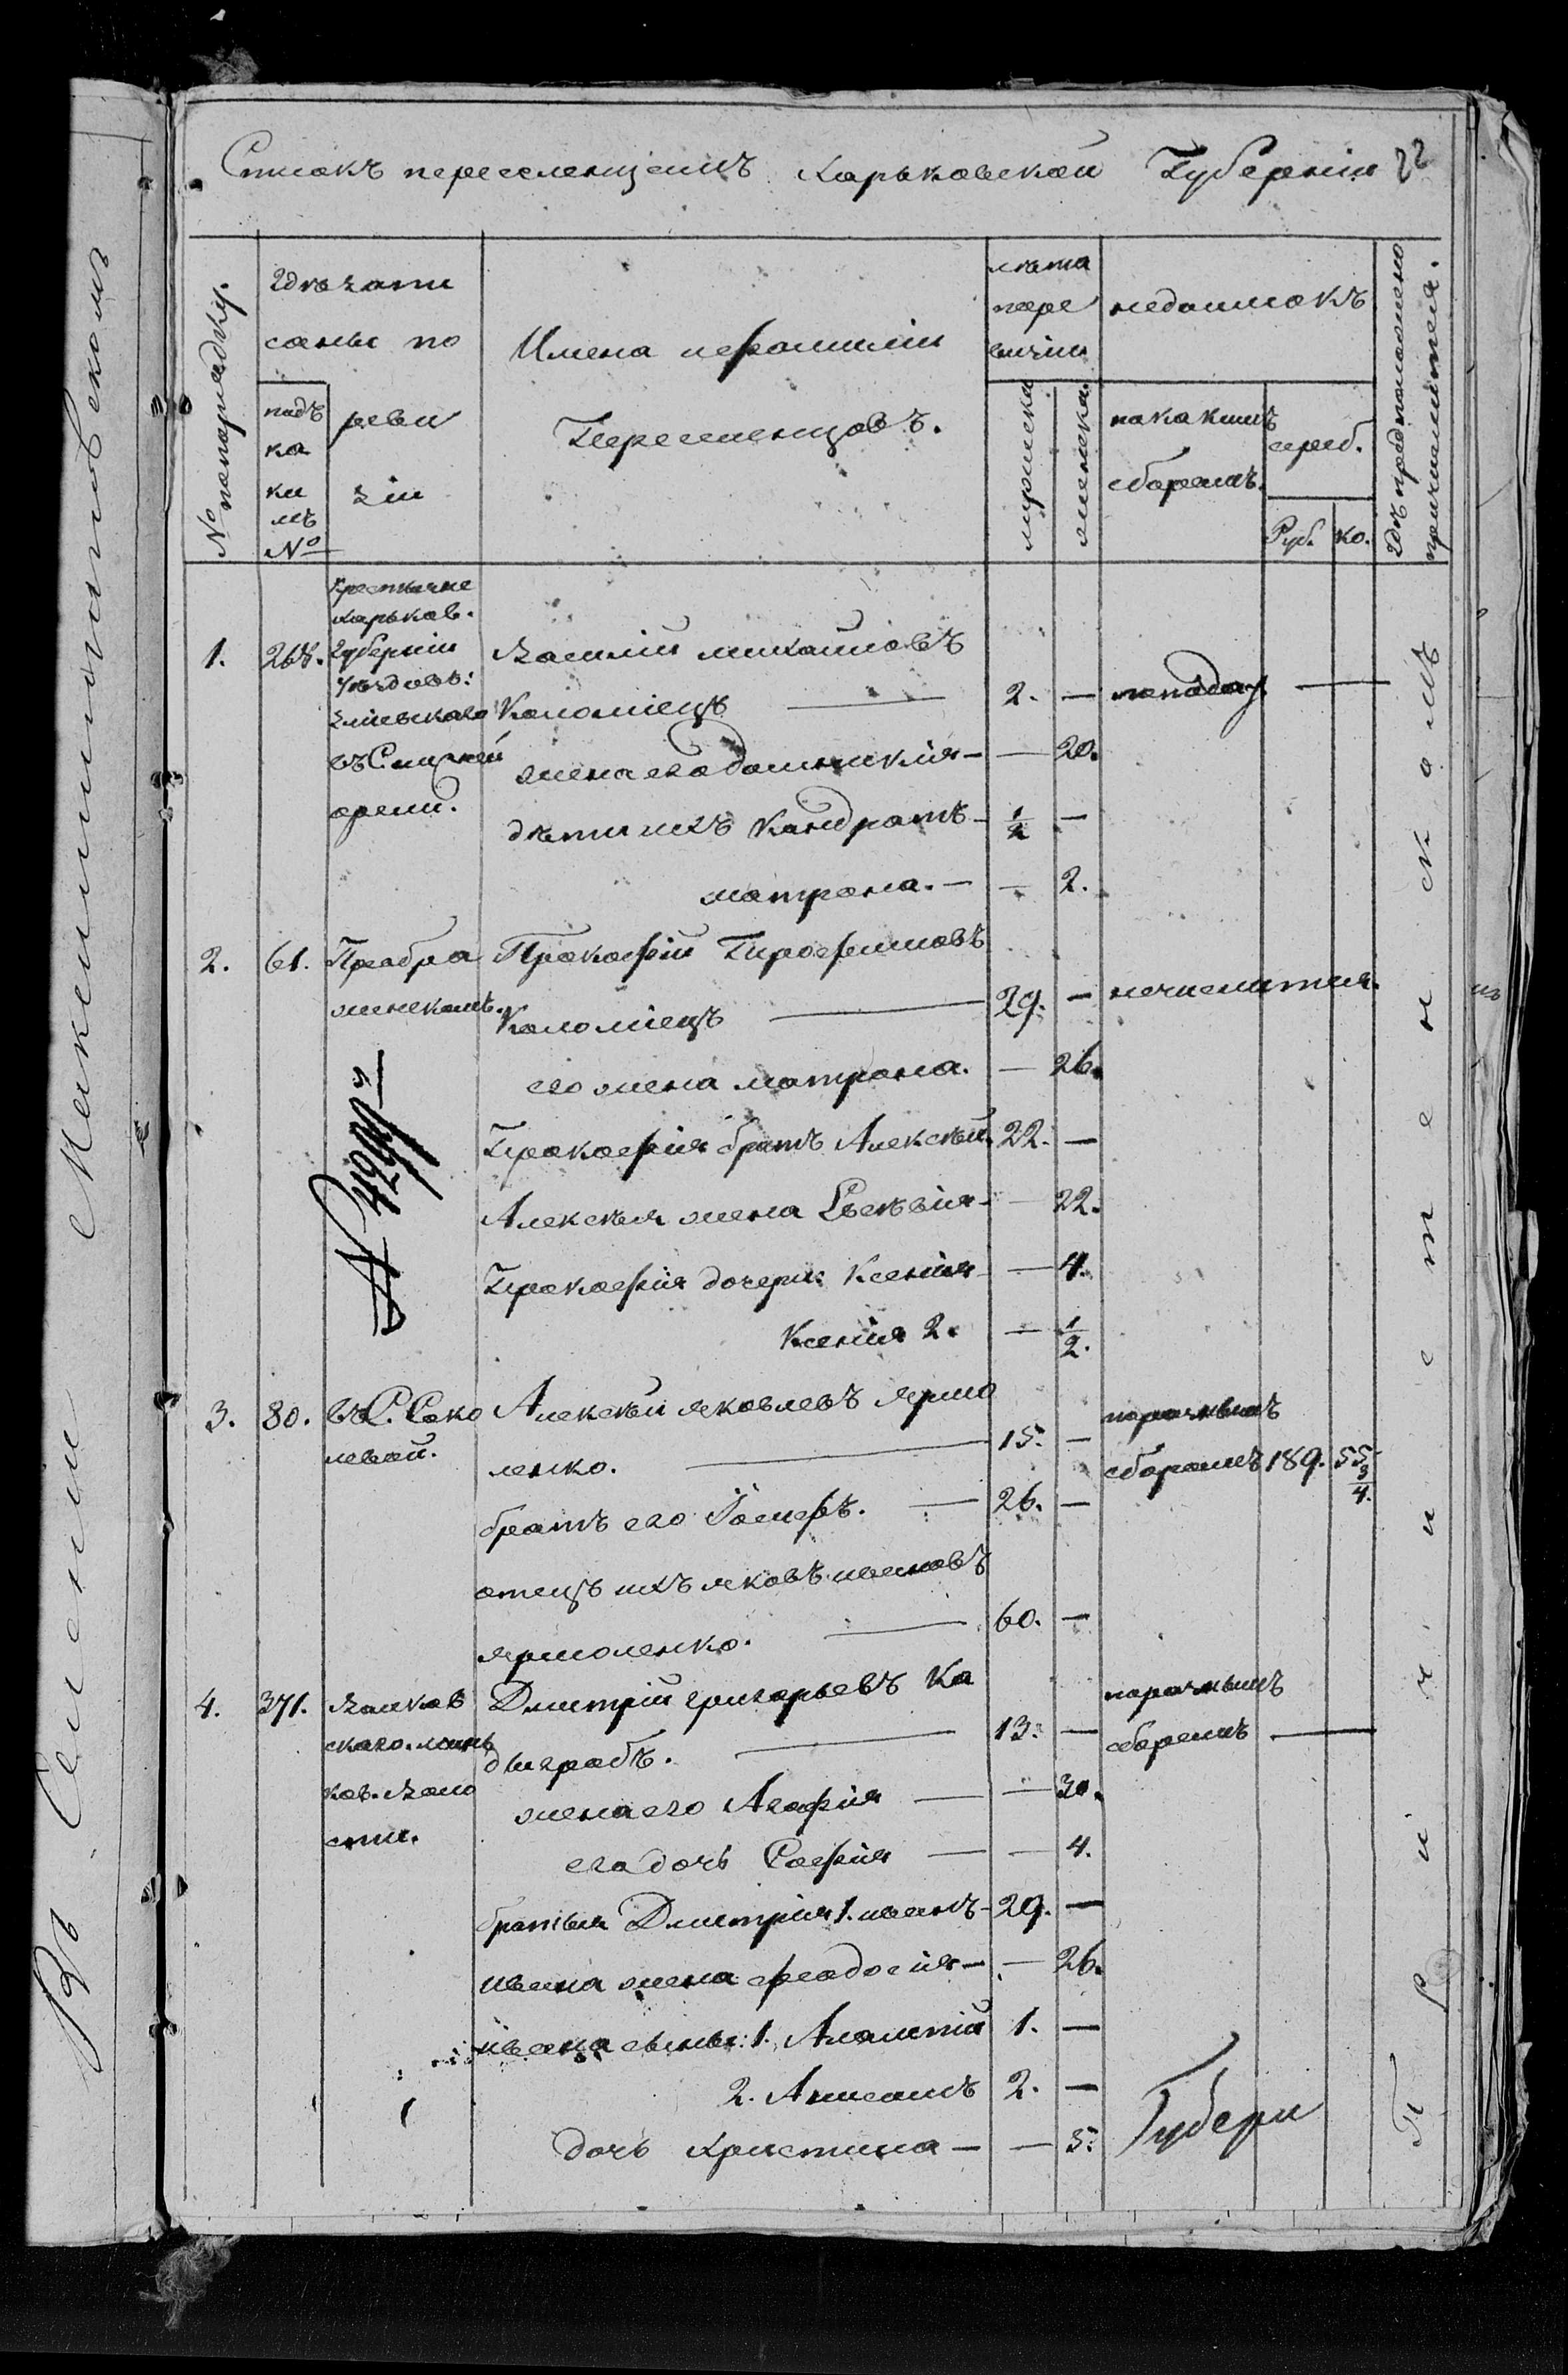 Списокъ переселенцамъ Харьковской Губерніи 22
№ попорядку.
Гдѣ запи
саны по
реви
зіи
подъ
ка
ки
мъ
№
Имена ифамиліи
Переселенцовъ.
лѣта
пере
мужеска
женска.
недоимокъ
покакимъ
сборамъ.
сереб.
Руб. Ко.
Гдѣ предположено
причислится.
1. 268.
Крестьяне
харьков.
Губерніи
уѣздовъ:
Зміевскаго
Василій михайловъ
Коломіецъ — 2. —
жена его домникія — — 20.
дѣти ихъ Кондратъ — 1/2 —
матрона. — — 2.
2. 61. Преобра
женскомъ.
Прокофій Трофимовъ
Коломіецъ — 29. — нечислится.
его жена матрона. — 26.
Прокофія братъ Алексѣй 22. —
Алексѣя жена — 22.
Прокофія дочери: Ксенія — 4.
Ксенія 2. — 1/2.
3. 80. въ С. Соко
ловой.
Алексѣй яковлевъ ярмо
ленко. — 15. —
поразнымъ
сборамъ 189. 55 3/4.
братъ его Іосифъ. — 26. —
отецъ ихъ яковъ ивановъ
ярмоленко. — 60. —
4. 371. Валков
скаго.
ков. Воло
сти.
Дмитрій григорьевъ Ка
— 13. —
поразнымъ
сборамъ —
жена его Агафія — — 30.
его дочь Софія — — 4.
братья Дмитрія 1. иванъ — 29. —
ивана жена феодосія — — 26.
ивана сыны: 1. 1. —
2. 2. —
дочь христина — — 5.
Губерн
Въ Селеніи